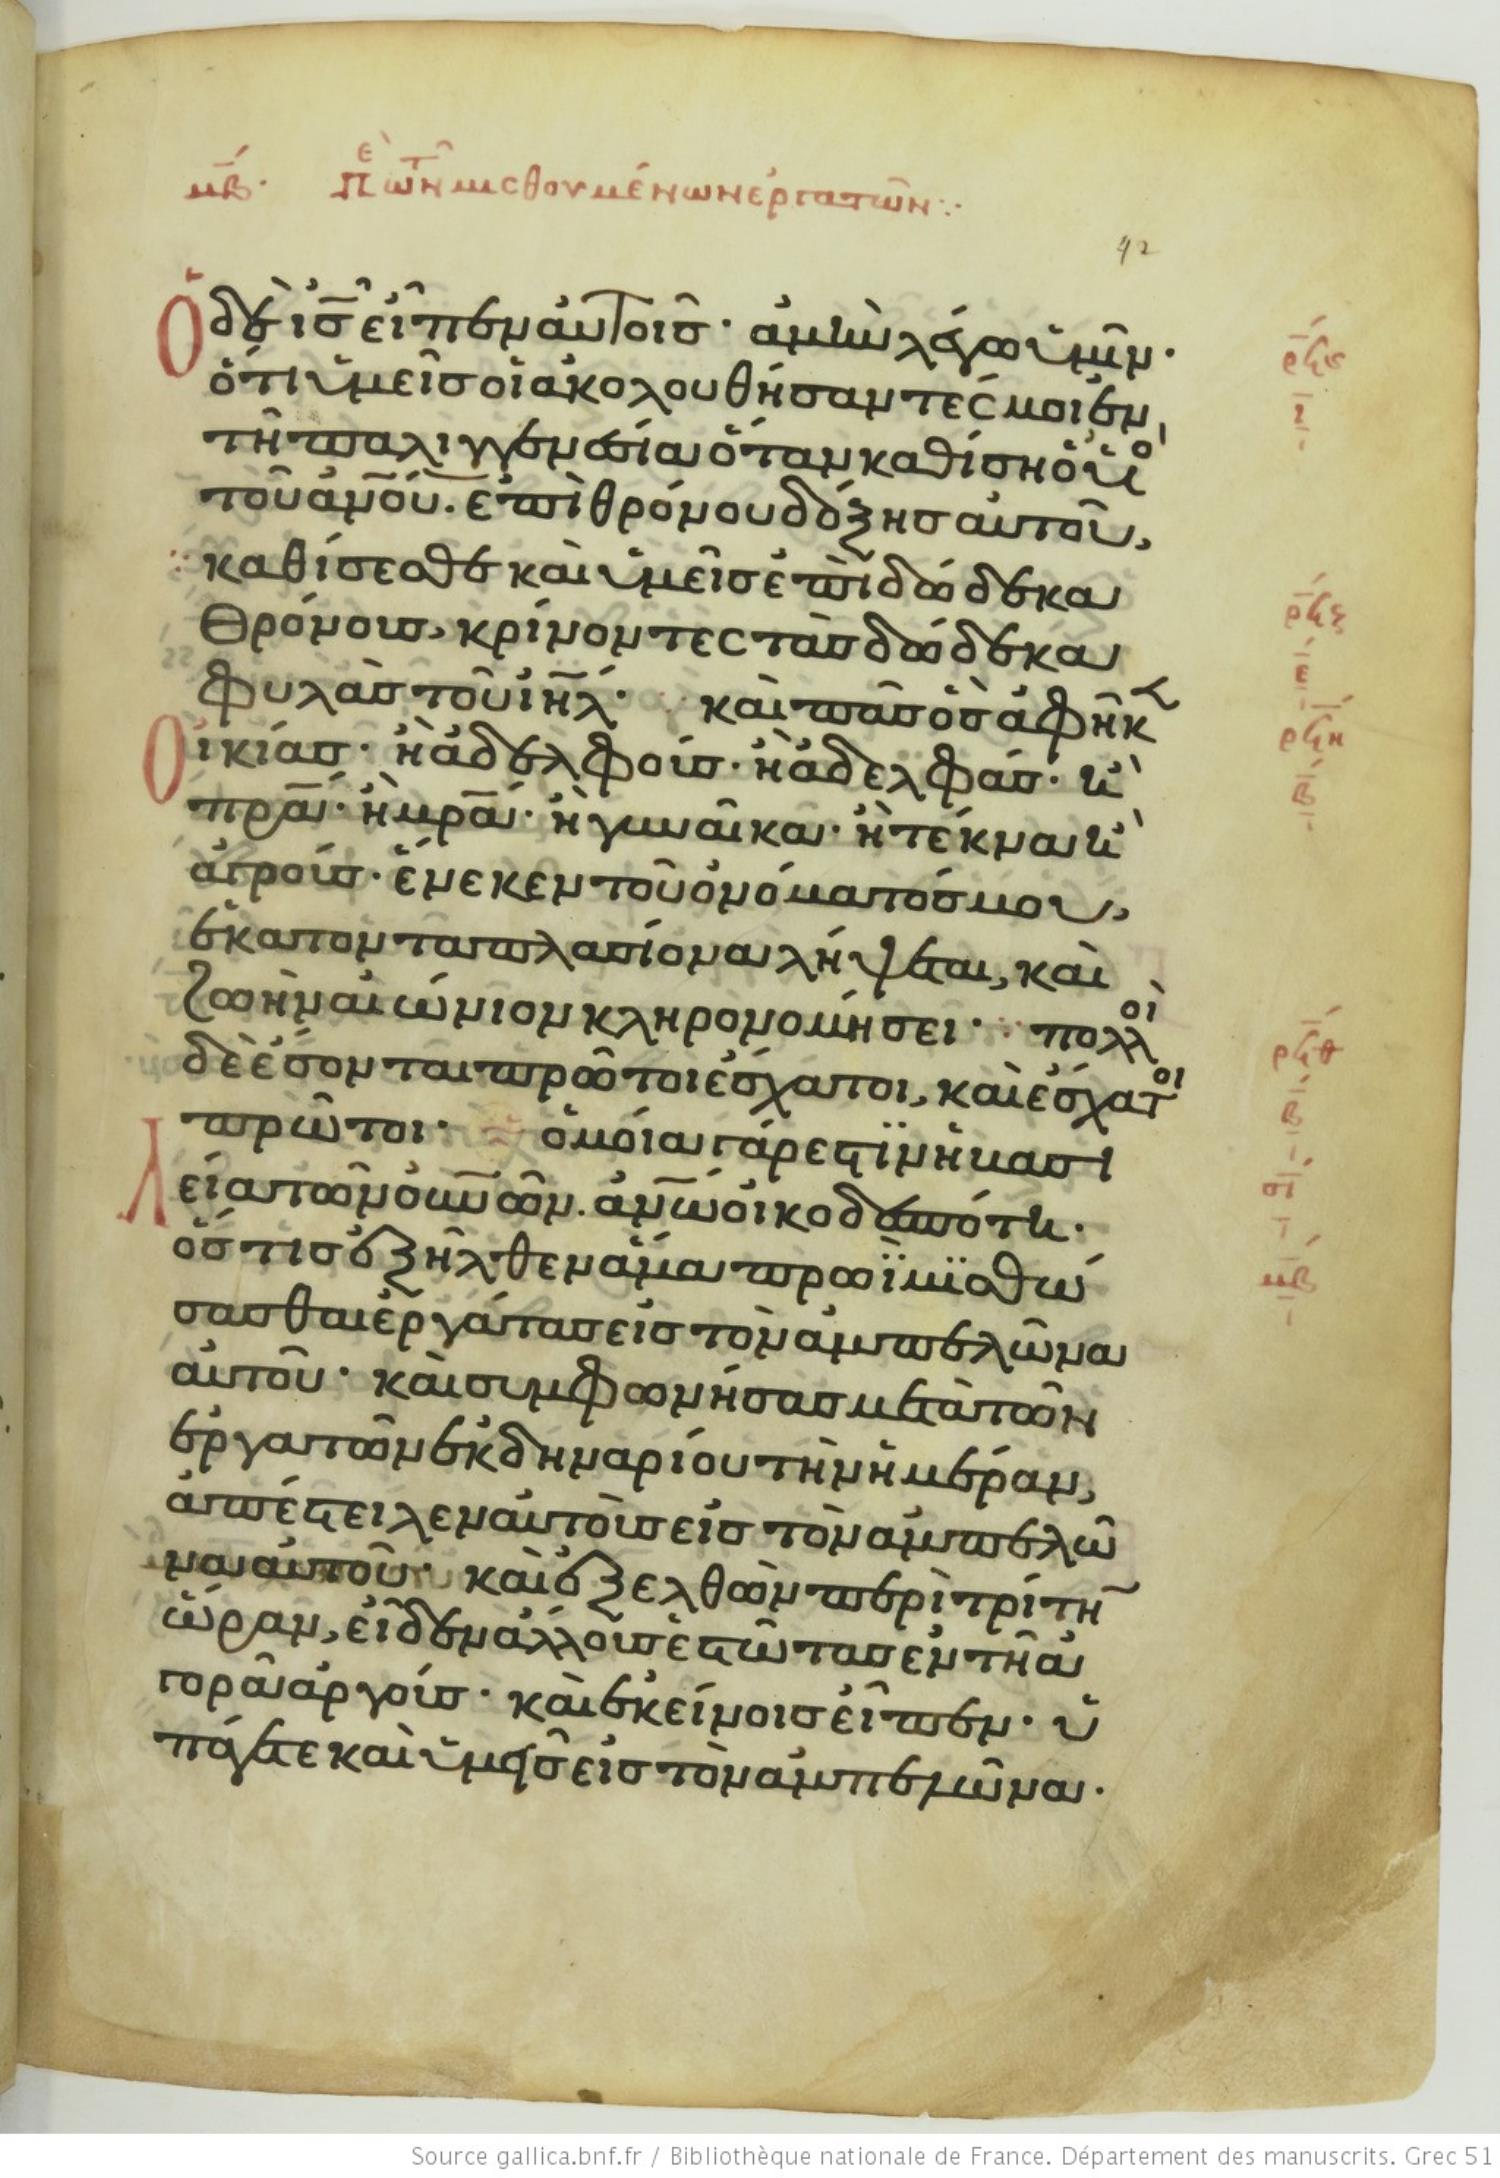 μβ· πε τῶν μισθουμένων ἐργατῶν:·
42
Ὁ δὲ ις εἶπεν αὐτοῖς· ἀμὴν λέγω ὑμῖν·
ὅτι ὑμεῖς οἱ ἀκολουθήσαντές μοι ἐν
τῆ παλιγγενεσία ὅταν καθίση ὁ υἱὸ
τοῦ ανου. ἐπὶ θρόνου δόξης αὐτοῦ,
καθίσεσθε καὶ ὑμεῖς ἐπὶ δώδεκα
θρόνους, κρίνοντες τὰς δώδεκα
φυλὰς τοῦ ιηλ· καὶ πᾶς ὃς ἀφῆκ
Οἰκίας· ἢ ἀδελφούς· ἢ ἀδελφάς· ἢ
πρα· ἢ μρα· ἢ γυναῖκα· ἢ τέκνα ἢ
ἀγρούς· ἕνεκεν τοῦ ὀνόματός μου,
ἑκατονταπλασίονα λήψεται, καὶ
ζωὴν αἰώνιον κληρονομήσει· πολλοὶ
δὲ ἔσονται πρῶτοι ἔσχατοι, καὶ ἔσχατοι
πρῶτοι· ὁμοία γάρ εστϊν ἡ βασι
λεία τῶν ουνῶν. ἀνω οἰκοδεσπότη·
ὅστις ἐξῆλθεν ἅμα πρωῒ μϊσθώ
σασθαι ἐργάτας εἰς τὸν ἀμπελῶνα
αὐτοῦ· καὶ συμφωνήσας μετὰ τῶν
ἐργατῶν ἐκ δηναρίου τὴν ἡμέραν,
ἀπέστειλεν αὐτοὺς εἰς τὸν ἀμπελῶ
να αὐτοῦ· καὶ ἐξελθὼν περὶ τρίτη
ὥραν, εἶδεν ἄλλους ἑστῶτας ἐν τῆ ἀ
γορᾶ ἀργούς· καὶ ἐκείνοις εἶπεν· ὑ
πάγετε καὶ ὑμεῖς εἰς τὸν ἀμπελῶνα·
ρϟϛ
ι
ρϟζ
ε
ρϟη
β
ρϟθ
β
σ
ι
μβ
Source gallica.bnf.fr / Bibliothèque nationale de France. Département des manuscrits. Grec 51